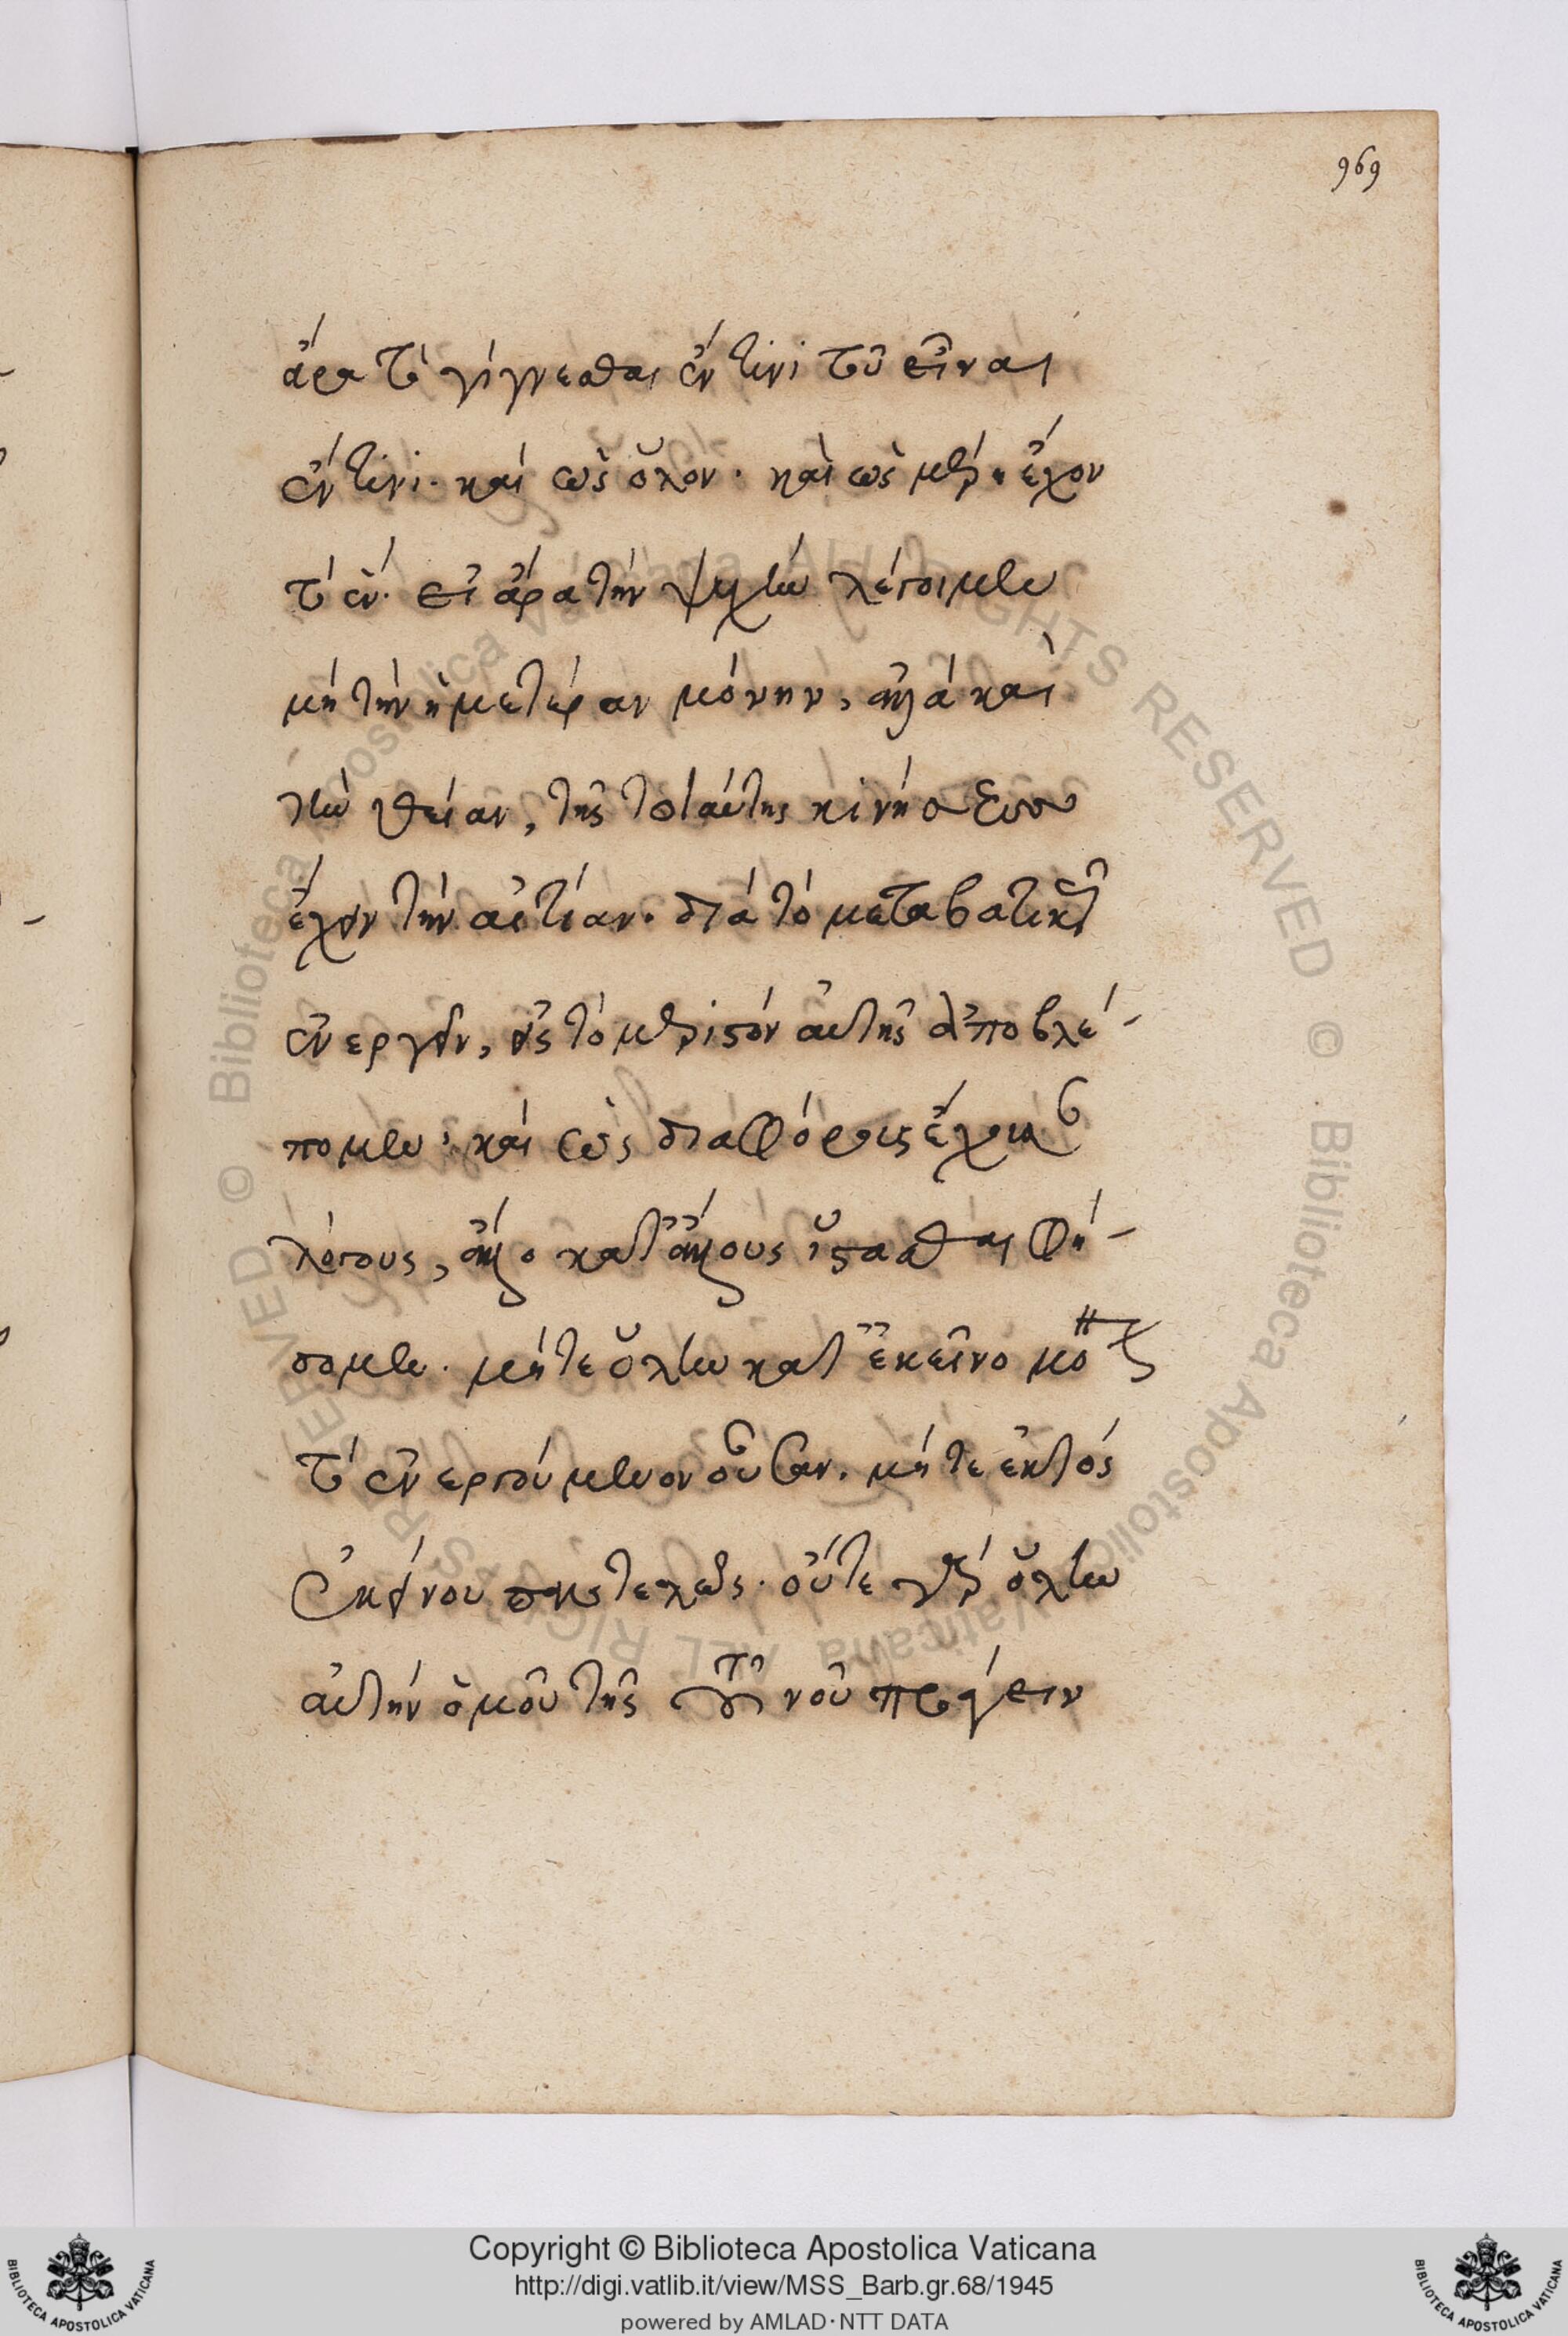 969
ἄρα τὸ γίγνεσθαι ἔν τινι τοῦ εἶναι
ἔν τινι. καὶ ὡς ὅλον. καὶ ὡς μέρη ἔχον
τὸ ἕν. εἰ ἄρα τὴν ψυχὴν λέγοιμεν
μὴ τὴν ἡμετέραν μόνην, ἀλλὰ καὶ
τὴν θείαν, τῆς τοιαύτης κινήσεως
ἔχειν τὴν αἰτίαν. διὰ τὸ μεταβατικῶς
ἐνεργεῖν, εἰς τὸ μεριστὸν αὐτῆς ἀποβλέ-
πομεν, καὶ ὡς διαφόρους ἔχουσαν
λόγους, ἄλλο κατ' ἄλλους ἵστασθαι φή-
σομεν. μήτε ὅλην κατ' ἐκεῖνο μόνως
τὸ ἐνεργούμενον οὖσαν. μήτε ἐκτὸς
ἐκείνου παντελῶς. οὔτε γὰρ ὅλην
αὐτὴν ὁμοῦ τῆς τοῦ νοῦ